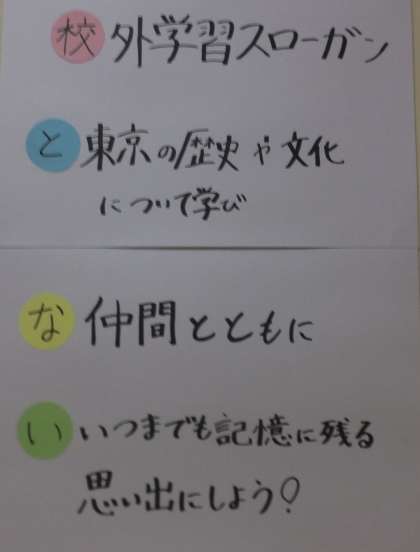 校外学習スローガン
と 東京の歴史や文化
について学び
な 仲間とともに
い いつまでも記憶に残る
思い出にしよう?